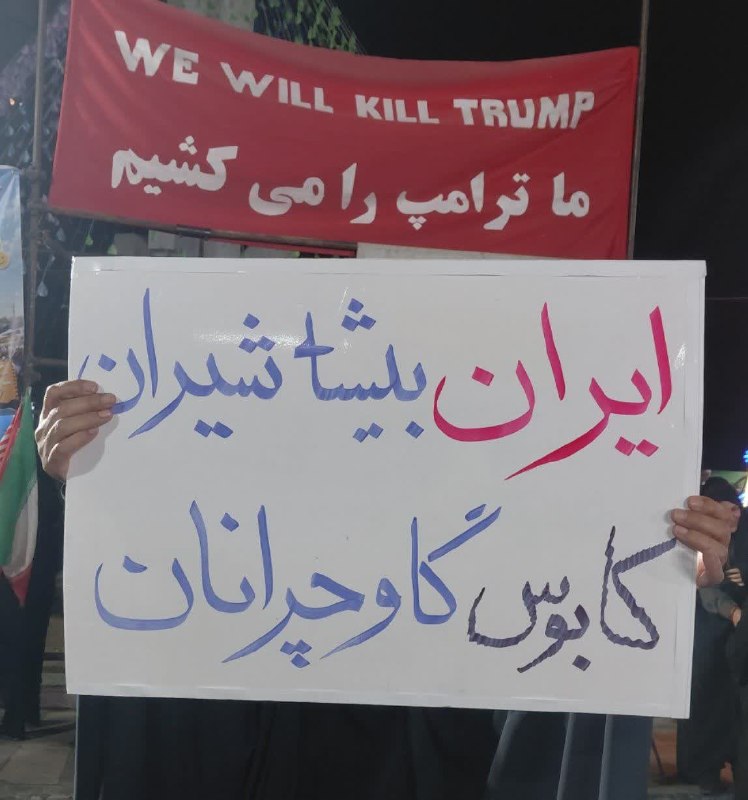 WE WILL KILL TRUMP
ما ترامپ را می کشیم
ایران بیشۀ شیران
کابوس گاوچرانان